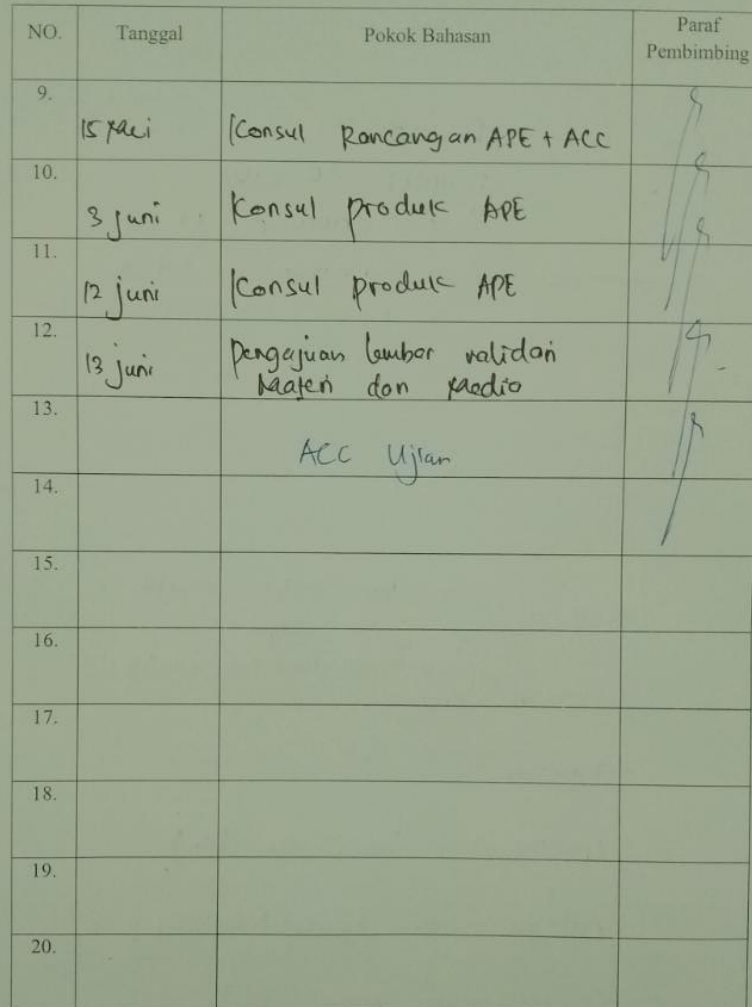 NO. Tanggal Pokok Bahasan Paraf Pembimbing
9. 15 Mei Konsul Rancangan APE + ACC
10. 3 juni Konsul produk APE
11. 12 juni Konsul produk APE
12. 13 juni Pengajuan lembar validasi
Materi dan Media
13. ACC Ujian
14.
15.
16.
17.
18.
19.
20.